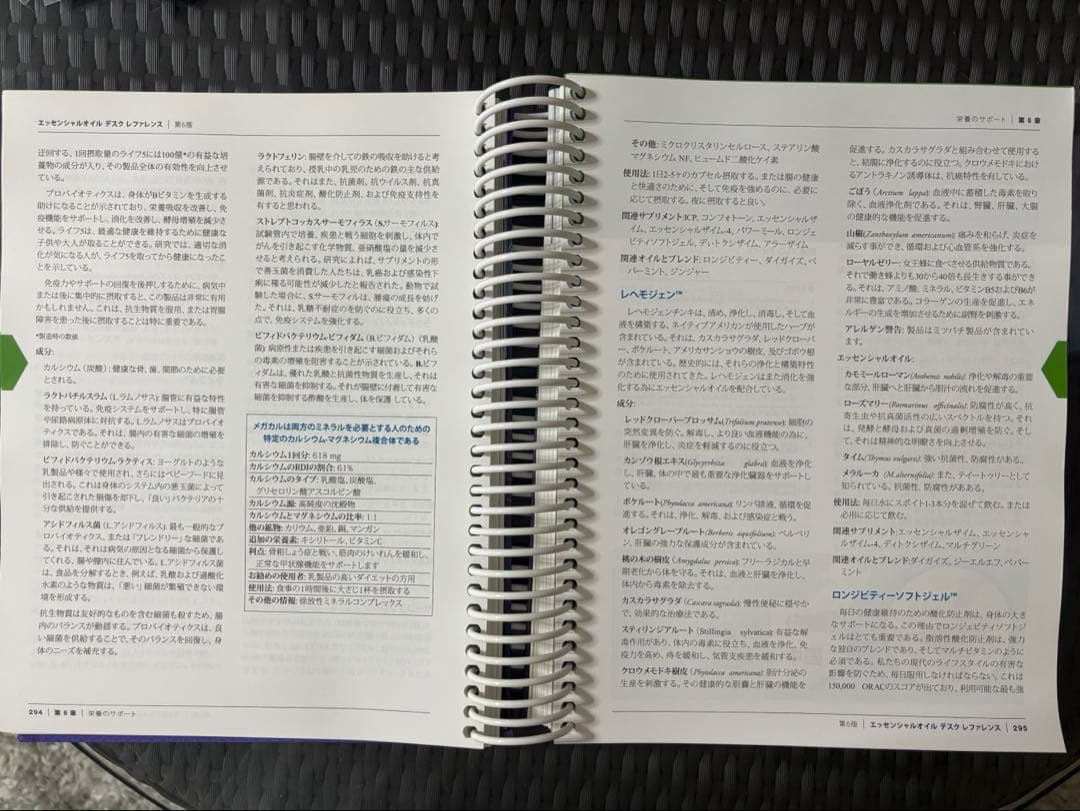 エッセンシャルオイル デスク レファレンス | 第6版
迂回する、1回摂取量のライフ5には100億*の有益な培
養物の成分が入り、その製品全体の有効性を向上させ
ている。
プロバイオティクスは、身体がBビタミンを生成する
助けになることが示されており、栄養吸収を改善し、免
疫機能をサポートし、消化を改善し、酵母増殖を減少さ
せる。ライフ5は、最適な健康を維持するために健康な
子供や大人が取ることができる。研究では、適切な消
化が気になる人が、ライフ5を取ってから健康になったこ
とを示している。
免疫力やサポートの回復を後押しするために、病気中
または後に集中的に摂取すると、この製品は非常に有用
かもしれません。これは、抗生物質を服用、または胃腸
障害を患った後に摂取することは特に重要である。
*製造時の数値
成分:
カルシウム(炭酸): 健康な骨、歯、関節のために必要
とされる。
ラクトバチルスラム(L.ラムノサス): 腸管に有益な特性
を持っている。免疫システムをサポートし、特に腸管
や尿路病原体に対抗する。L.ラムノサスはプロバイオ
ティクスである。それは、腸内の有害な細菌の増殖を
排除し、防ぐことができる。
ビフィドバクテリウム・ラクティス: ヨーグルトのような
乳製品や様々で使用され、さらにはベビーフードに見
出される。これは身体システム内の悪玉菌によって
引き起こされた損傷を却下し、「良い」バクテリアの十
分な供給を提供する。
アシドフィルス菌(L.アシドフィルス): 最も一般的なプ
ロバイオティクス、または「フレンドリー」な細菌であ
る。それは、それは病気の原因となる細菌から保護し
てくれる、腸や膣内に住んでいる。L.アシドフィルス菌
は、食品を分解するとき、例えば、乳酸および過酸化
水素のような物質は、「悪い」細菌が繁殖できない環
境を形成する。
抗生物質は友好的なものを含む細菌も殺すため、腸
内のバランスが動揺する。プロバイオティクスは、良
い細菌を供給することで、そのバランスを回復し、身
体のニーズを補充する。
ラクトフェリン: 腸壁を介しての鉄の吸収を助けると考
えられており、授乳中の乳児のための鉄の主な供給
源である。それはまた、抗菌剤、抗ウイルス剤、抗真
菌剤、抗炎症剤、酸化防止剤、および免疫支持性を有
すると思われる。
ストレプトコッカスサーモフィラス(S.サーモフィルス):
試験管内で培養、疾患と戦う細胞を刺激し、体内で
がんを引き起こす化学物質、亜硝酸塩の量を減少さ
せると考えられる。研究によれば、サプリメントの形
で善玉菌を消費した人たちは、乳癌および感染性下
痢に罹る可能性が減少したと報告された。動物で試
験した場合に、S.サーモフィルは、腫瘍の成長を妨げ
た。それは、乳糖不耐症のを防ぐのに役立ち、多くの
点で、免疫システムを強化する。
ビフィドバクテリウム・ビフィダム(B.ビフィダム)(乳酸
菌): 病原性または疾患を引き起こす細菌およびそれら
の毒素の増殖を阻害することが示されている。B.ビフ
ィダムは、優れた乳酸と抗菌性物質を生産し、それは
有害な細菌を抑制する。それが腸壁に付着して有害な
細菌を抑制する酢酸を生産し、体を保護 している。
メガカルは両方のミネラルを必要とする人のための
特定のカルシウム・マグネシウム複合体である
カルシウム1回分: 618 mg
カルシウムのRDIの割合: 61%
カルシウムのタイプ: 乳酸塩、炭酸塩、
グリセロリン酸アスコルビン酸
カルシウム源: 高純度の沈殿物
カルシウムとマグネシウムの比率: 1:1
他の鉱物: カリウム、亜鉛、銅、マンガン
追加の栄養素: キシリトール、ビタミンC
利点: 骨粗しょう症と戦い、筋肉のけいれんを緩和し、
正常な甲状腺機能をサポートします
お勧めの使用者: 乳製品の高いダイエットの方用
使用法: 食事の1時間後に大さじ1杯を摂取する
その他の情報: 徐放性ミネラルコンプレックス
294 | 第 6 章 | 栄養のサポート
栄養のサポート | 第 6 章
その他: ミクロクリスタリンセルロース、ステアリン酸
マグネシウム NF、ヒュームド二酸化ケイ素
使用法: 1日2-5ケのカプセル摂取する。または腸の健康
と快適さのために、そして免疫を強めるのに、必要に
応じて摂取する。夜に摂取すると良い。
関連サプリメント:ICP、コンフォトーン、エッセンシャルザ
イム、エッセンシャルザイム-4、パワーミール、ロンジェ
ビティソフトジェル、ディトクシザイム、アラーザイム
関連オイルとブレンド: ロンジビティー、ダイガイズ、ペ
パーミント、ジンジャー
レヘモジェン™
レヘモジェンチンキは、清め、浄化し、消毒し、そして血
液を構築する、ネイティブアメリカンが使用したハーブが
含まれている。それは、カスカラサグラダ、レッドクローバ
ー、ポケルート、アメリカサンショウの樹皮、及びゴボウ根が
含まれている。歴史的には、それらの浄化と構築特性
のために使用されてきた。レヘモジェンはまた消化を強
化する為にエッセンシャルオイルを配合している。
成分:
レッドクローバーブロッサム(Trifolium pratense): 細胞の
突然変異を防ぐ。解毒し、より良い血液機能の為に、
肝臓を浄化し、炎症を軽減するのに役立つ。
カンゾウ根エキス(Glycyrrhiza glabra): 血液を浄化
し、肝臓、体の中で最も重要な浄化臓器をサポートし
ている。
ポケルート(Phytolacca americana): リンパ排液、循環を促
進する。それは、浄化、解毒、および感染症と戦う。
オレゴングレープルート(Berberis aquifolium): ベルベリ
ン、肝臓の強力な保護成分が含まれている。
桃の木の樹皮(Amygdalus persica): フリーラジカルと早
期老化から体を守る。それは、血液と肝臓を浄化し、
体内から毒素を除去する。
カスカラサグラダ(Cascara sagrada): 慢性便秘に穏やか
で、効果的な治療法である。
スティリンジアルート(Stillingia sylvatica): 有益な解
毒作用があり、体内の毒素に役立ち、血液を浄化、免
疫力を高め、痔を緩和し、気管支疾患を緩和する。
クロウメモドキ樹皮(Phytolacca americana): 胆汁分泌の
生産を刺激する。その健康的な胆嚢と肝臓の機能を
促進する。カスカラサグラダと組み合わせて使用する
と、結腸に浄化するのに役立つ。クロウメモドキにおけ
るアントラキノン誘導体は、抗癌特性を有している。
ごぼう(Arctium lappa): 血液中に蓄積した毒素を取り
除く、血液浄化剤である。それは、腎臓、肝臓、大腸
の健康的な機能を促進する。
山椒(Zanthoxylum americanum): 痛みを和らげ、炎症を
減らす事ができ、循環および心血管系を強化する。
ローヤルゼリー: 女王蜂に食べさせる供給物質である。
それで働き蜂よりも30から40倍も長生きする事ができ
る。それは、アミノ酸、ミネラル、ビタミンB5およびB6が
非常に豊富である。コラーゲンの生産を促進し、エネ
ルギーの生産を増加させるために副腎を刺激する。
アレルゲン警告: 製品はミツバチ製品が含まれてい
ます。
エッセンシャルオイル:
カモミールローマン(Anthemis nobilis): 浄化や解毒の重要
な部分、肝臓へと肝から胆汁の流れを促進する。
ローズマリー(Rosmarinus officinalis): 防腐性が高く、抗
寄生虫や抗真菌活性の広いスペクトルを持つ。それ
は、発酵と酵母および真菌の過剰増殖を防ぐ、そし
て、それは精神的な明瞭さを向上させる。
タイム(Thymus vulgaris): 強い抗菌性、防腐性がある。
メラルーカ (M.alternifolia): また、テイートゥリーとして
知られている。抗菌性、防腐性がああある。
使用法: 毎日水にスポイト1-3本分を混ぜて飲む。または
必用に応じて飲む。
関連サプリメント:エッセンシャルザイム、エッセンシャル
ザイム-4、ディトクシザイム、マルチグリーン
関連オイルとブレンド:ダイガイズ、ジーエルエフ、ペパー
ミント
ロンジビティーソフトジェル™
毎日の健康維持のための酸化防止剤は、身体の大き
なサポートになる。この理由でロンジェビティソフトジ
ェルはとても重要である。脂溶性酸化防止剤は、強力
な独自のブレンドであり、そしてマルチビタミンのように
必須である。私たちの現代のライフスタイルの有害な
影響を防ぐため、毎日服用しなければならない。これは
150,000 ORACのスコアが出ており、利用可能な最も強
第6版 | エッセンシャルオイル デスク レファレンス | 295